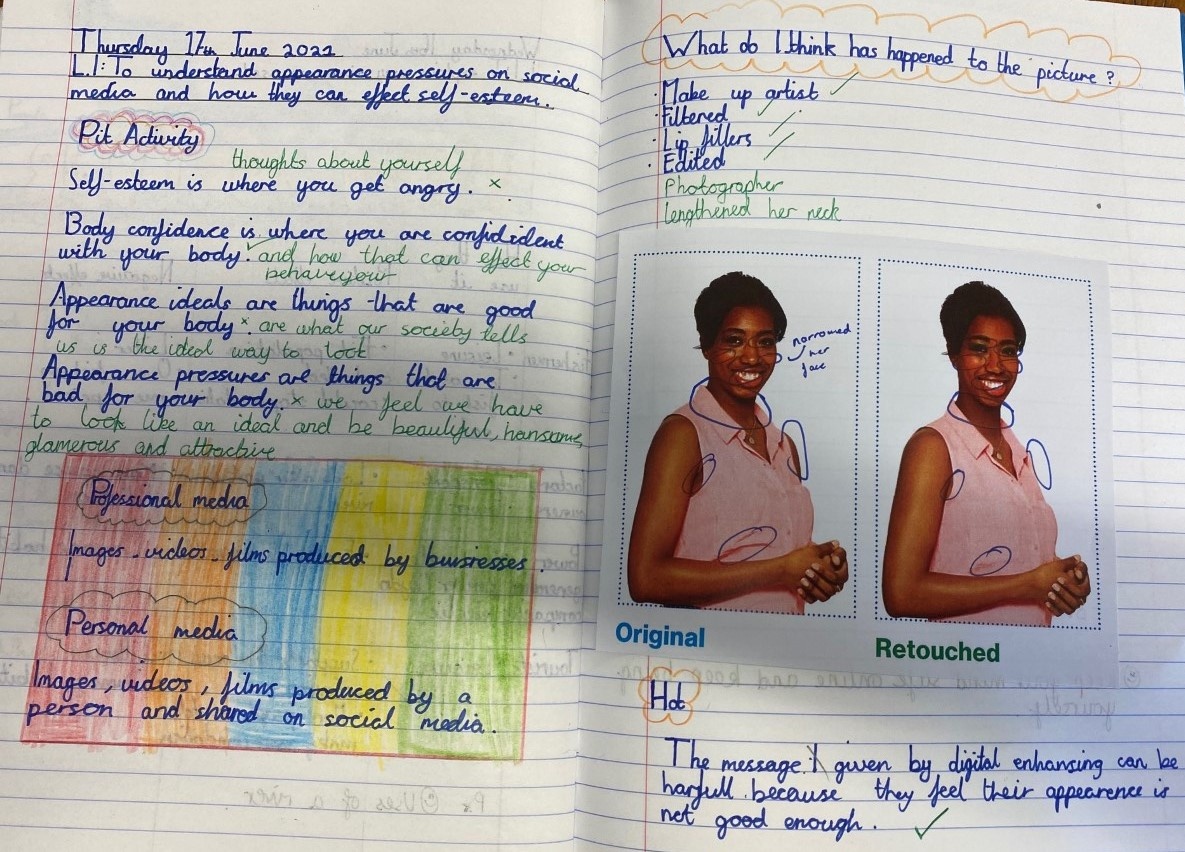 Thursday 17th June 2021
L.I: To understand appearance pressures on social
media and how they can effect self-esteem.
Pit Activity
thoughts about yourself
Self-esteem is where you get angry. x
Body confidence is where you are confidident
with your body. and how that can effect your
behaveyour
Appearance ideals are things that are good
for your body x. are what our society tells
us is the ideal way to look
Appearance pressures are things that are
bad for your body. x we feel we have
to look like an ideal and be beautiful, hansome,
glamerous and attractive
Professional media
Images, videos, films produced by bursresses
Personal media
Images, videos, films produced by a
person and shared on social media.
What do I think has happened to the picture?
· Make up artist ✓
· Filtered ✓
· Lip fillers
· Edited
Photographer
Lengthened her neck
narrowed
her
face
Original
Retouched
Hot
The message given by digital enhansing can be
harfull because they feel their appearence is
not good enough. ✓